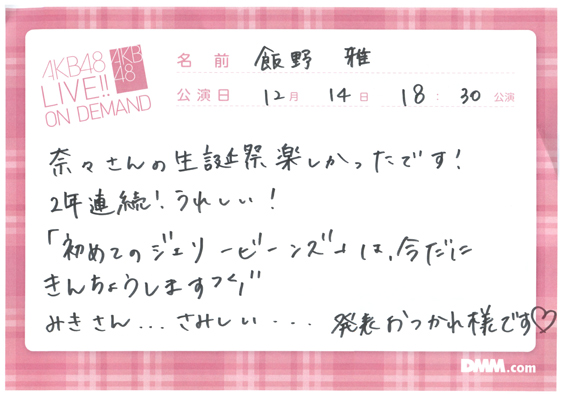 AKB48
LIVE!!
ON DEMAND
AKB
48
名前 飯野 雅
公演日 12月 14日 18:30 公演
奈々さんの生誕祭楽しかったです!
2年連続!うれしい!
「初めてのジェリービーンズ」は、今だに
きんちょうしますつ
みきさん...さみしい... 発表おつかれ様です♡
DMM.com